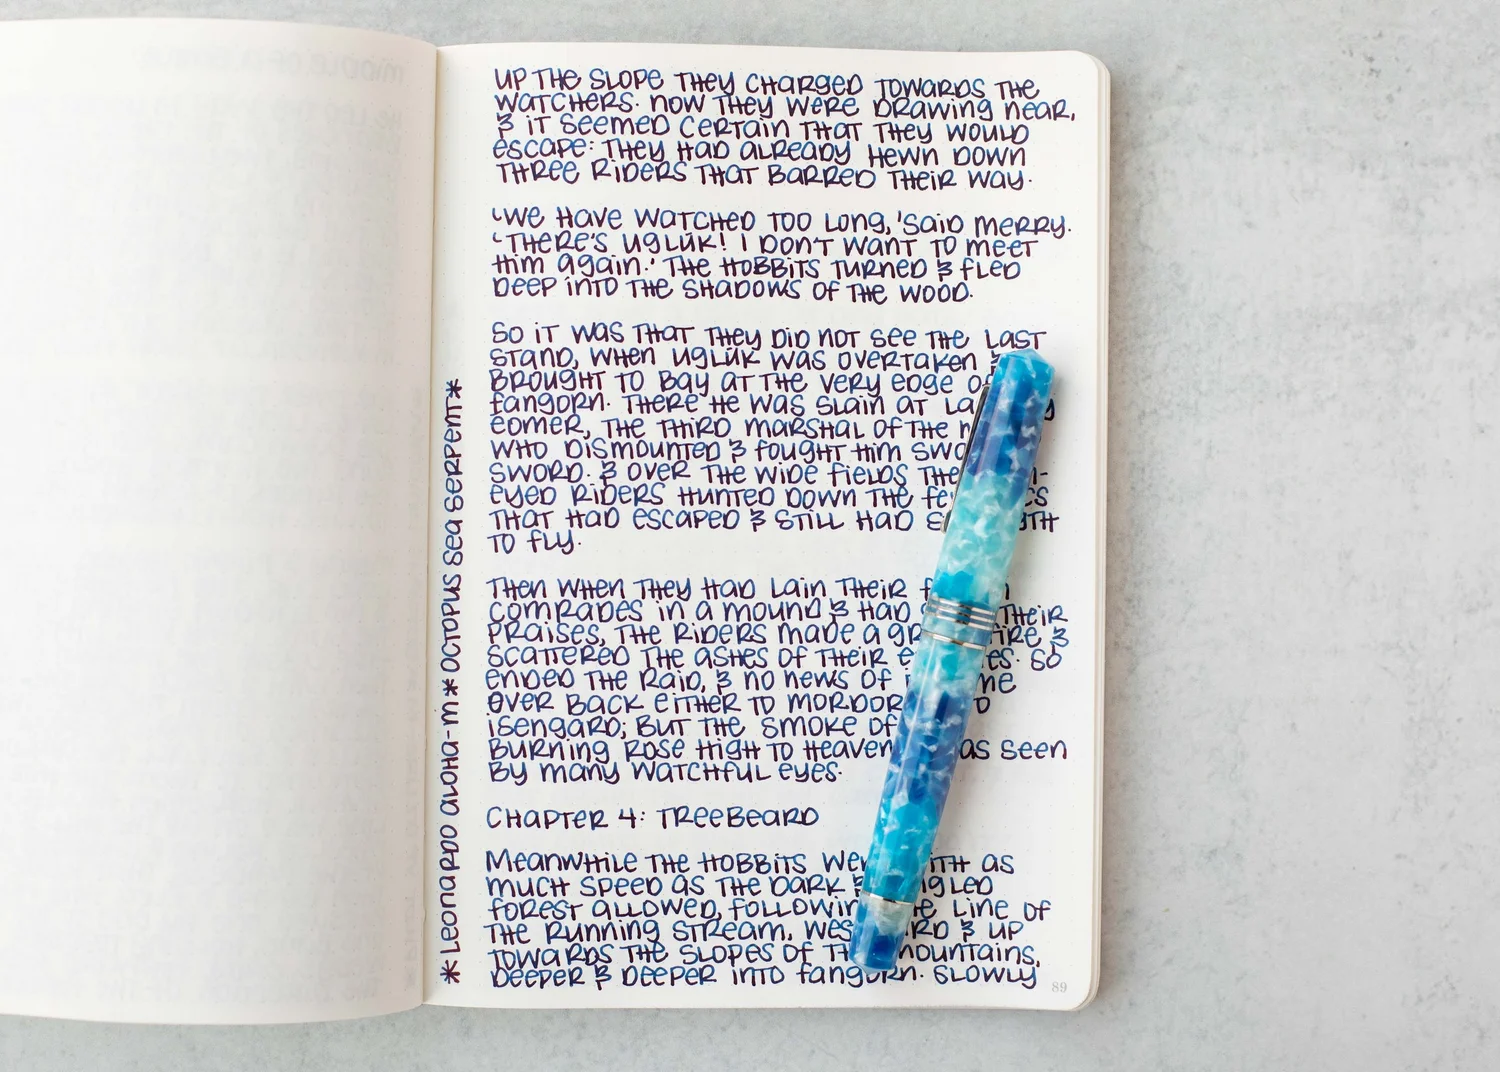 UP THE SLOPE THEY CHARGED TOWARDS THE
WATCHERS. NOW THEY WERE DRAWING NEAR,
& IT SEEMED CERTAIN THAT THEY WOULD
ESCAPE: THEY HAD ALREADY HEWN DOWN
THREE RIDERS THAT BARRED THEIR WAY.
'WE HAVE WATCHED TOO LONG,' SAID MERRY.
'THERE'S UGLÚK! I DON'T WANT TO MEET
HIM AGAIN.' THE HOBBITS TURNED & FLED
DEEP INTO THE SHADOWS OF THE WOOD.
SO IT WAS THAT THEY DID NOT SEE THE LAST
STAND, WHEN UGLÚK WAS OVERTAKEN &
BROUGHT TO BAY AT THE VERY EDGE
FANGORN. THERE HE WAS SLAIN AT
EOMER, THE THIRD MARSHAL OF THE
WHO DISMOUNTED & FOUGHT HIM
SWORD. & OVER THE WIDE FIELDS THE
EYED RIDERS HUNTED DOWN THE
THAT HAD ESCAPED & STILL HAD
TO FLY.
THEN WHEN THEY HAD LAIN THEIR
COMRADES IN A MOUND & HAD THEIR
PRAISES, THE RIDERS MADE A &
SCATTERED THE ASHES OF THEIR SO
ENDED THE RAID, & NO NEWS OF
OVER BACK EITHER TO MORDOR
ISENGARD; BUT THE SMOKE OF
BURNING ROSE HIGH TO HEAVEN SEEN
BY MANY WATCHFUL EYES.
CHAPTER 4: TREEBEARD
MEANWHILE THE HOBBITS AS
MUCH SPEED AS THE DARK &
FOREST ALLOWED, FOLLOWING LINE OF
THE RUNNING STREAM, & UP
TOWARDS THE SLOPES OF MOUNTAINS,
DEEPER & DEEPER INTO FANGORN. SLOWLY
89
* LEONARDO ALOHA-M * OCTOPUS SEA SERPENT *